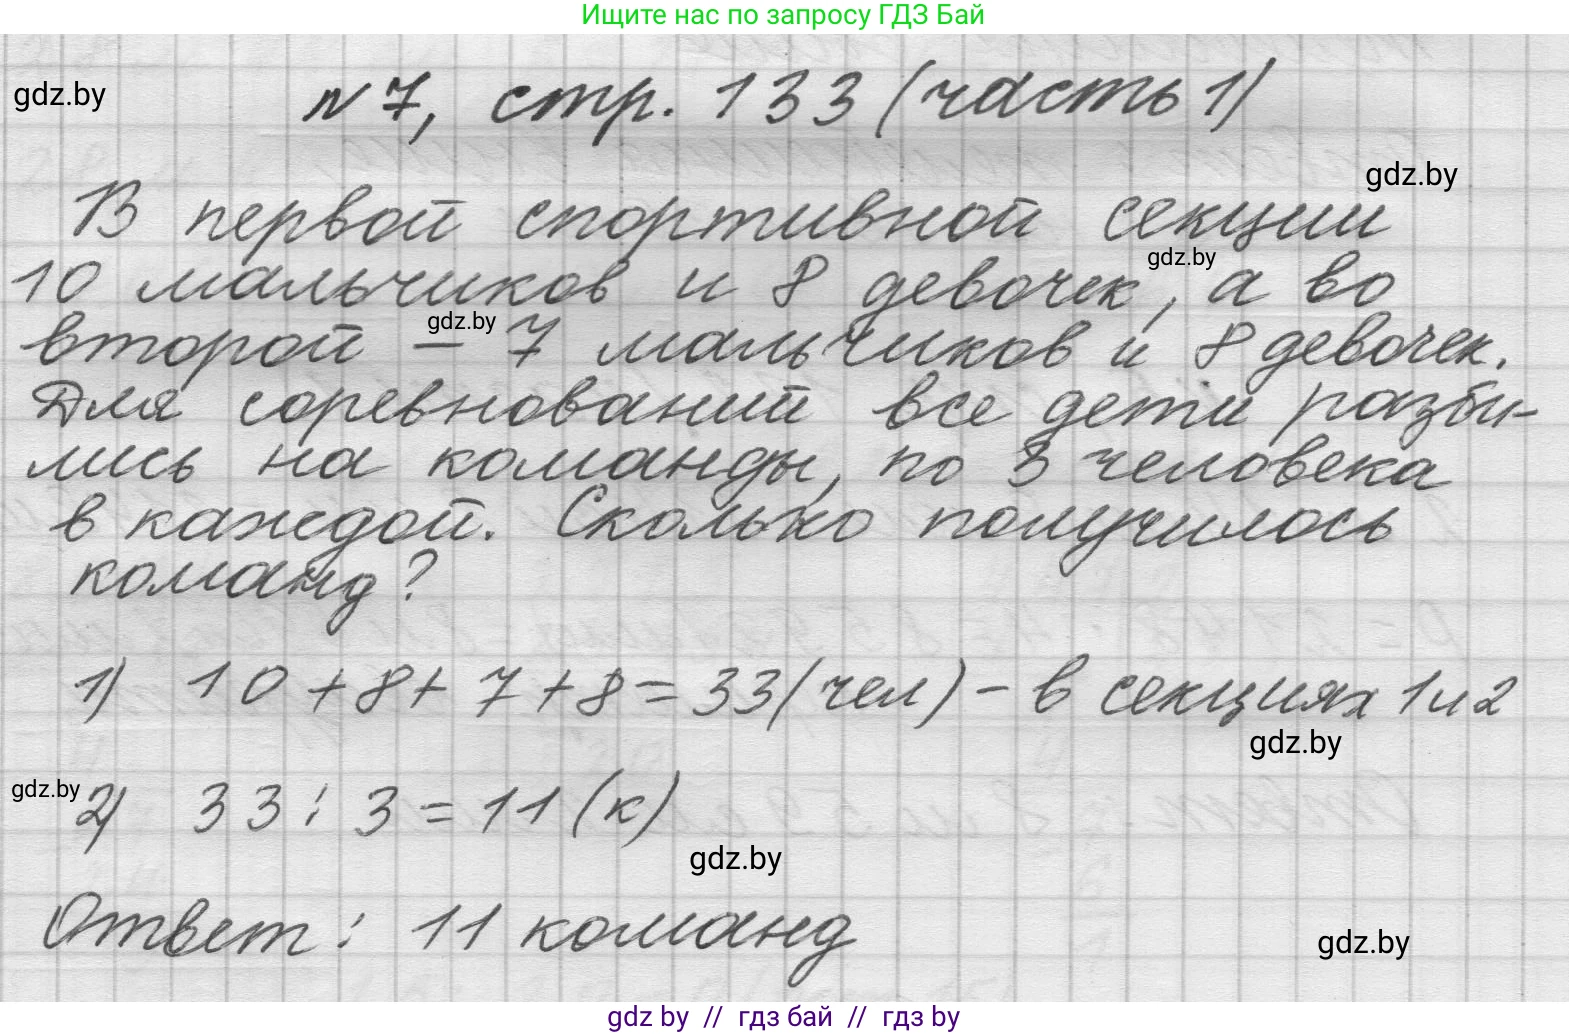 Ищите нас по запросу ГДЗ Бай
gdz.by
№7, стр. 133 (часть 1)
gdz.by
В первой спортивной секции
gdz.by
10 мальчиков и 8 девочек, а во
gdz.by
второй – 7 мальчиков и 8 девочек.
Для соревнований все дети разби-
лись на команды, по 3 человека
в каждой. Сколько получилось
команд?
1) 10 + 8 + 7 + 8 = 33 (чел) – в секциях 1 и 2
gdz.by
gdz.by
2) 33 : 3 = 11 (к)
gdz.by
Ответ: 11 команд
gdz.by
gdz by // гдз бай // гдз by